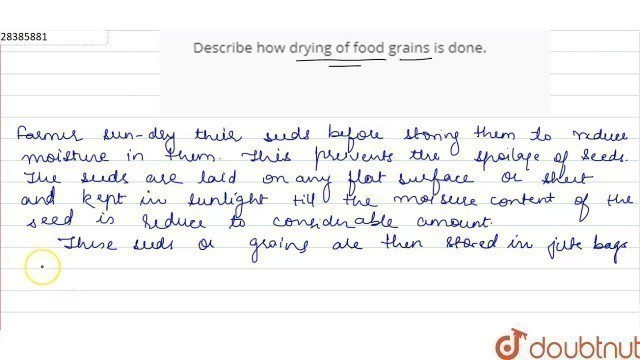 28385881
Describe how drying of food grains is done.
Farmer sun-dry their seeds before storing them to reduce
moisture in them. This prevents the spoilage of seeds.
The seeds are laid on any flat surface or sheet
and kept in sunlight till the moisure content of the
seed is reduce to considerable amount.
These seeds or grains are then stored in jute bags
doubtnut